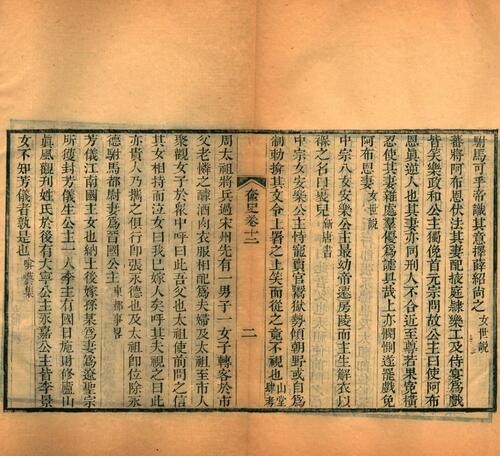 駙馬可乎帝識其意擇薛紹尚之女世說
蕃將阿布恩伏法其妻配掖庭隸樂工及侍宴爲戲
皆笑樂政和公主獨俛首元宗問故公主曰使阿布
恩眞逆人也其妻亦同刑人不合近至尊若果寃橫
忍使其妻雜處羣優爲謔具哉上亦憫惻遂罷戲免
阿布恩妻女世說
中宗八女安樂公主最幼帝遷房陵而主生解衣以
褓之名曰裹兒新唐書
中宗女安樂公主恃寵賣官鬻獄勢傾朝野或自爲
制勅掩其文令上署之上笑而從之竟不視也山堂肆考
奩史卷十二
二
周太祖將兵過宋州先有一男子一女子轉客於市
父老憐之釀酒肉衣服相配爲夫婦及太祖至市人
聚觀女子於衆中呼曰此吾父也太祖使前問之信
其女相持而泣女曰我已嫁人矣呼其夫視之曰此
亦貴人乃攜之俱行卽張永德也及太祖卽位除永
德駙馬都尉妻爲晉國公主東都事畧
芳儀江南國主女也納土後嫁孫某爲妻爲遼聖宗
所獲封芳儀生公主一人李主有國日施財修廬山
眞風觀刋姓氏於後有大寧公主永嘉公主皆李景
女不知芳儀者孰是也